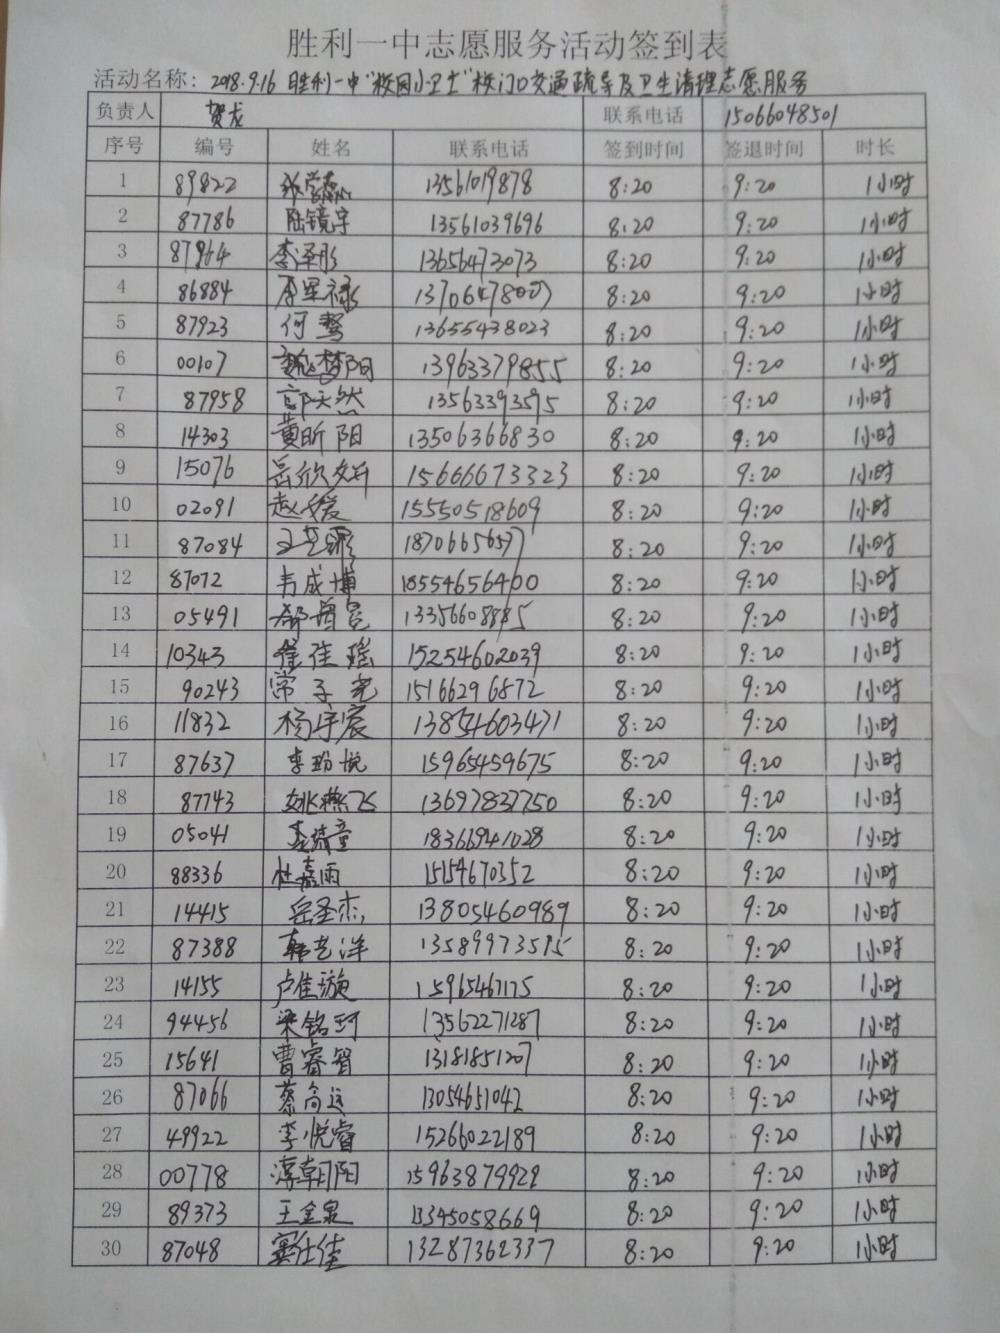 胜利一中志愿服务活动签到表
活动名称：2018.9.16 胜利一中"校园小卫士"校门口交通疏导及卫生清理志愿服务
负责人 贺龙 联系电话 15066048501
序号 编号 姓名 联系电话 签到时间 签退时间 时长
1 89822 13561019878 8:20 9:20 1小时
2 87786 陆镜宇 13561039696 8:20 9:20 1小时
3 87964 李泽彤 13656473073 8:20 9:20 1小时
4 86884 李军禄 8:20 9:20 1小时
5 87923 何鹜 13655438023 8:20 9:20 1小时
6 00107 魏梦阳 13963379855 8:20 9:20 1小时
7 87958 郭天然 13563393595 8:20 9:20 1小时
8 14303 黄昕阳 13506366830 8:20 9:20 1小时
9 15076 岳欣妍 15666673323 8:20 9:20 1小时
10 02091 赵媛 15550518609 8:20 9:20 1小时
11 87084 18706656577 8:20 9:20 1小时
12 87072 韦成博 18554656400 8:20 9:20 1小时
13 05491 13356608885 8:20 9:20 1小时
14 10343 崔佳瑶 15254602039 8:20 9:20 1小时
15 90243 常子尧 15166296872 8:20 9:20 1小时
16 11832 杨宇宸 13854603471 8:20 9:20 1小时
17 87637 李玢悦 15965459675 8:20 9:20 1小时
18 87743 姚燕飞 13697837750 8:20 9:20 1小时
19 05041 李琦童 18366941028 8:20 9:20 1小时
20 88336 杜嘉雨 15154670352 8:20 9:20 1小时
21 14415 岳圣杰 13805460989 8:20 9:20 1小时
22 87388 韩艺洋 13589973595 8:20 9:20 1小时
23 14155 卢佳漩 15965467175 8:20 9:20 1小时
24 94456 梁铭珂 13562271287 8:20 9:20 1小时
25 15641 曹睿智 13181851207 8:20 9:20 1小时
26 87066 蔡尚运 13054651042 8:20 9:20 1小时
27 49922 李悦睿 15266022189 8:20 9:20 1小时
28 00778 淳朝阳 15963879929 8:20 9:20 1小时
29 89373 王金泉 13345058669 8:20 9:20 1小时
30 87048 窦仕佳 13287362337 8:20 9:20 1小时